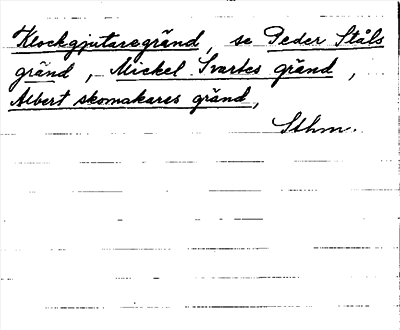 Klockgjutaregränd, se Peder Ståls
gränd, Mickel Svartes gränd,
Albert skomakares gränd,
Sthm.